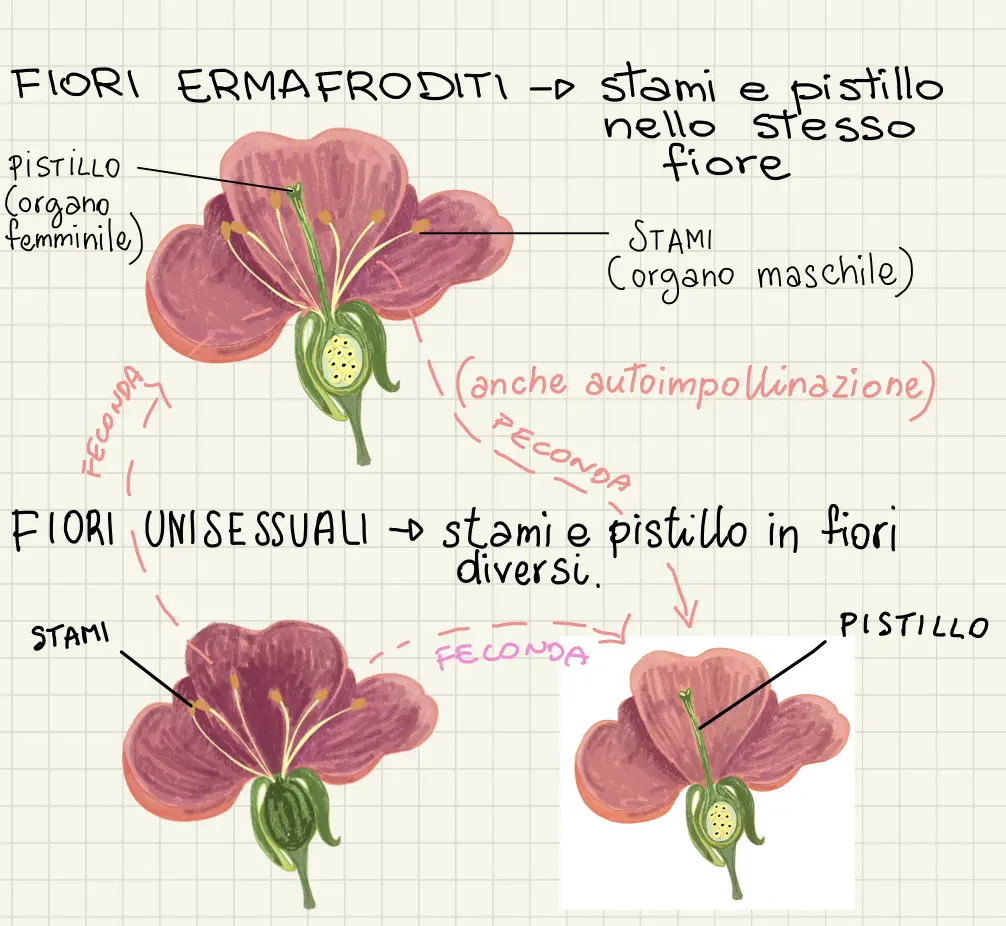 FIORI ERMAFRODITI → stami e pistillo
nello stesso
fiore
PISTILLO
(organo
femminile)
STAMI
(organo maschile)
FECONDA
(anche autoimpollinazione)
FECONDA
FIORI UNISESSUALI → stami e pistillo in fiori
diversi.
STAMI
FECONDA
PISTILLO